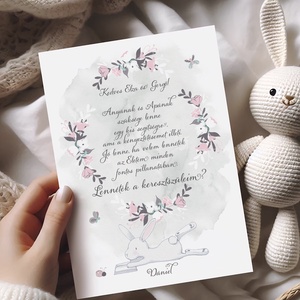 Kedves Elza és Gergő!
Anyának és Apának
szüksége lenne
egy kis segítségre
ami a kényeztetésemet illeti.
Jó lenne, ha velem lennétek
az Életem minden
fontos pillanatában.
Lennétek a keresztszüleim?
Dániel